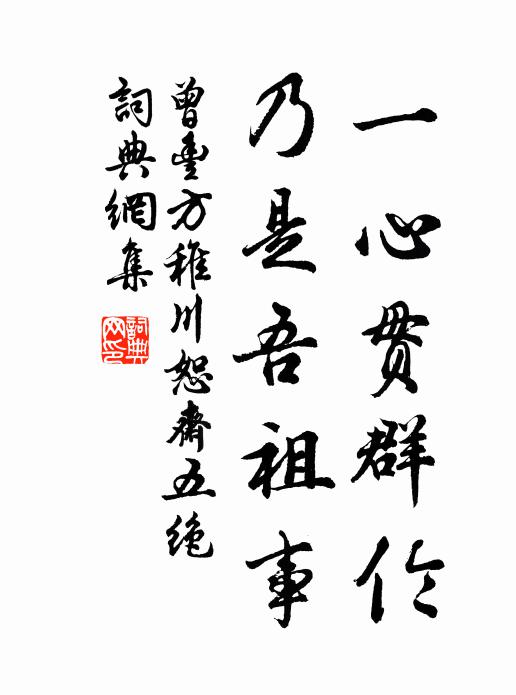 一心貫群伦
乃是吾祖事
曾豊方稚川恕齋五绝
詞典網集
詞典
网印